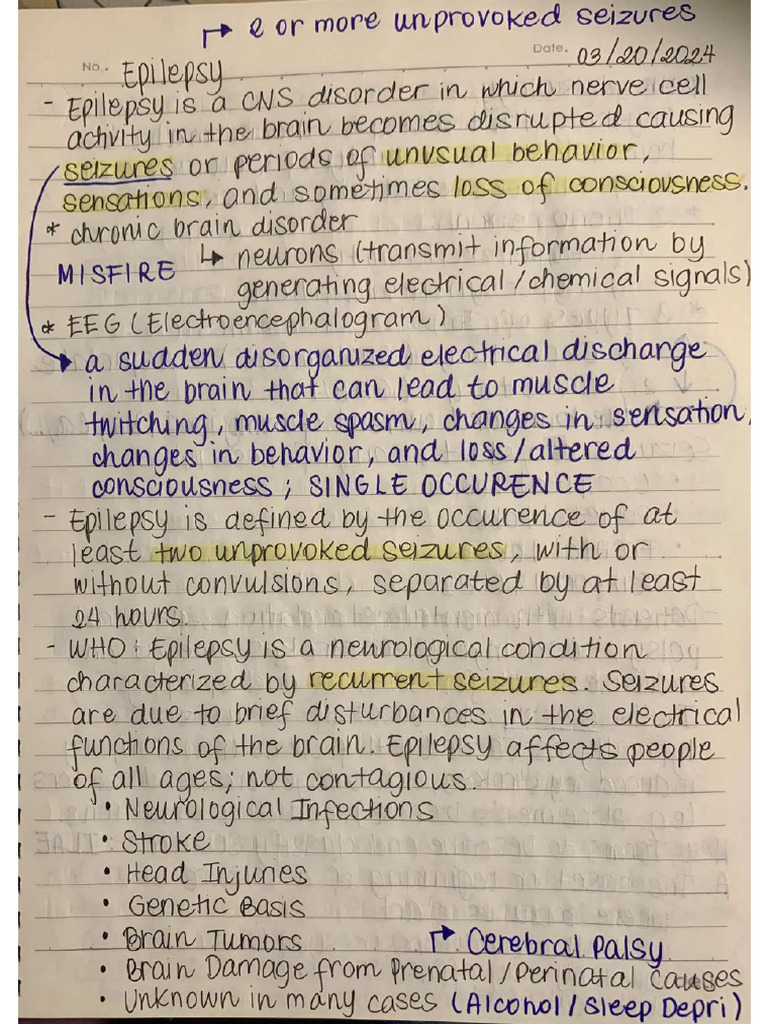 ↱ 2 or more unprovoked seizures
No. Epilepsy Date. 03/20/2024
- Epilepsy is a CNS disorder in which nerve cell
activity in the brain becomes disrupted causing
seizures or periods of unusual behavior,
sensations, and sometimes loss of consciousness.
* chronic brain disorder
MISFIRE ↳ neurons (transmit information by
generating electrical/chemical signals)
* EEG (Electroencephalogram)
a sudden disorganized electrical discharge
in the brain that can lead to muscle
twitching, muscle spasm, changes in sensation,
changes in behavior, and loss/altered
consciousness; SINGLE OCCURENCE
- Epilepsy is defined by the occurence of at
least two unprovoked seizures, with or
without convulsions, separated by at least
24 hours.
- WHO: Epilepsy is a neurological condition
characterized by recurrent seizures. Seizures
are due to brief disturbances in the electrical
functions of the brain. Epilepsy affects people
of all ages; not contagious.
• Neurological Infections
• Stroke
• Head Injuries
• Genetic Basis
• Brain Tumors ↱ Cerebral Palsy
• Brain Damage from Prenatal/Perinatal causes
• Unknown in many cases (Alcohol/Sleep Depri)